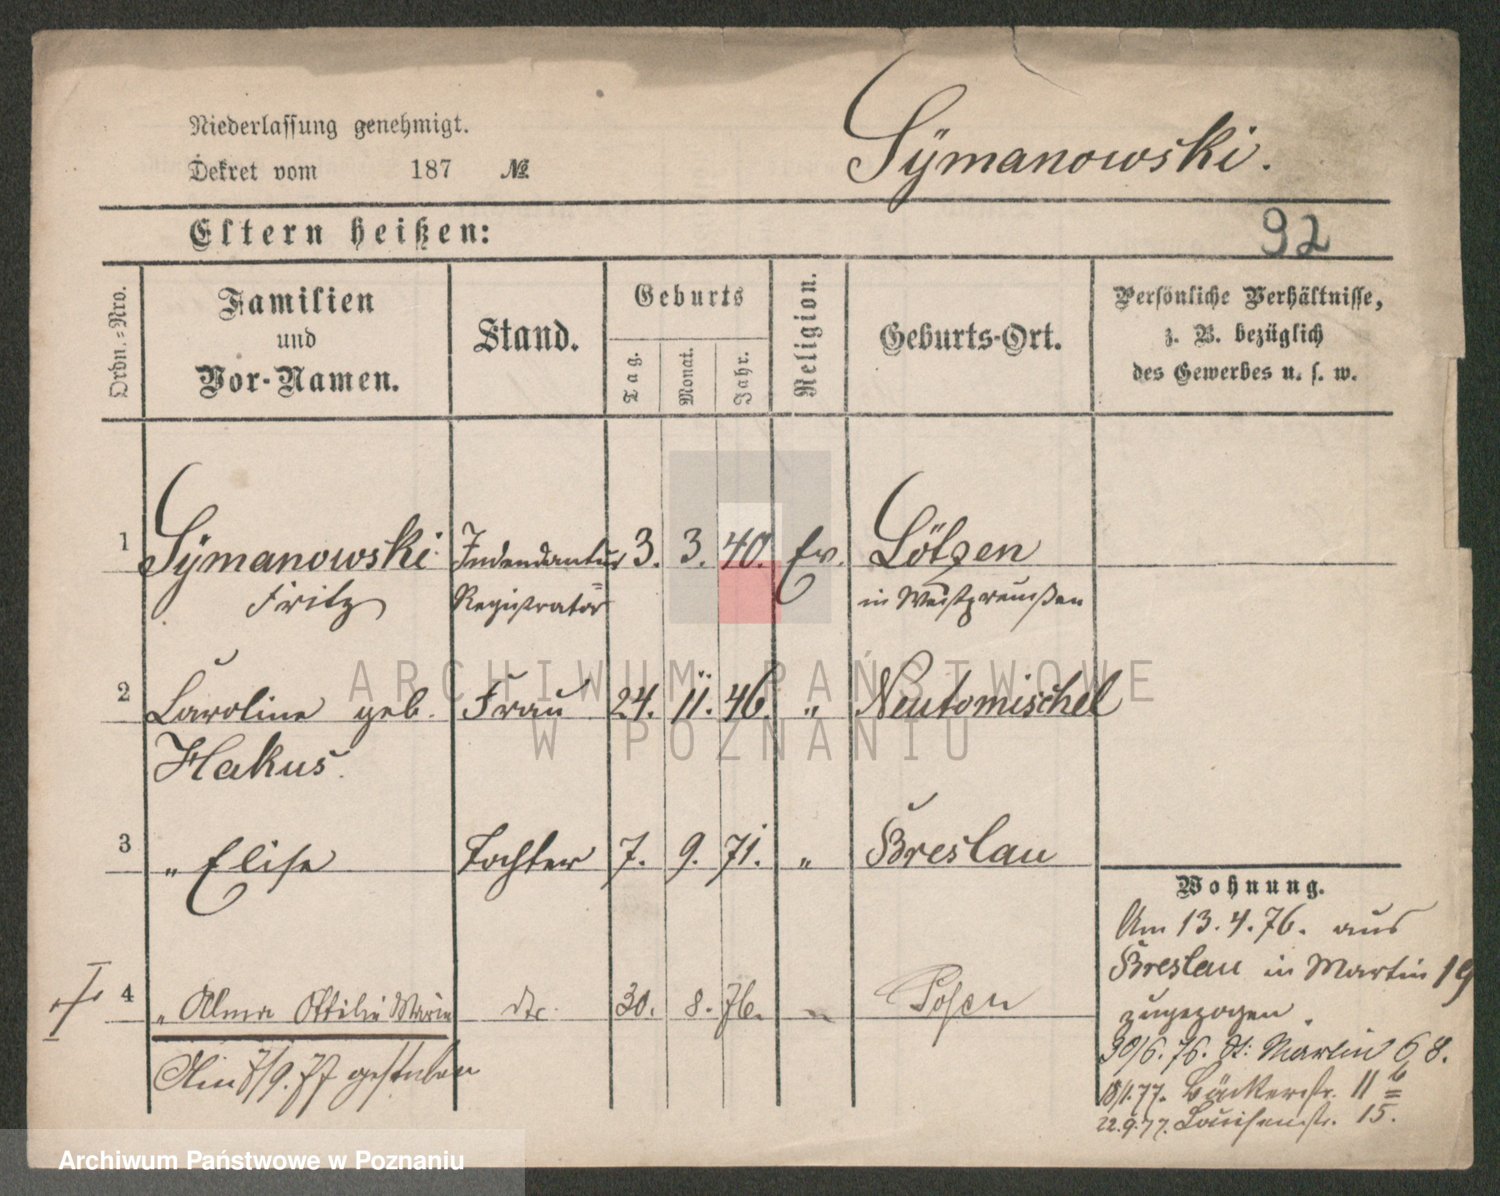 Niederlassung genehmigt.
Dekret vom 187 №
Sÿmanowski.
Eltern heißen:
92
Ordn.-Nro.
Familien
und
Vor-Namen.
Stand.
Geburts
Tag.
Monat.
Jahr.
Religion.
Geburts-Ort.
Persönliche Verhältnisse,
z. B. bezüglich
des Gewerbes u. s. w.
1 Sÿmanowski Indendantur 3. 3. 40. Ev. Lötzen
Fritz Registrator in Westpreußen
2 Caroline geb. Frau 24. 11. 46. " Neutomischel
Hakus.
3 " Elise Tochter 7. 9. 71. " Breslau
4 " Alma Ottilie Marie dto. 30. 8. 76. " Posen
Am 7/9. 77 gestorben
Wohnung.
Am 13.4.76. aus
Breslau in Martin 19
zugezogen.
30/6.76. St: Martin 68.
18/1.77. Bäckerstr. 11 b
22.9.77. Louisenstr. 15.
ARCHIWUM PAŃSTWOWE
W POZNANIU
Archiwum Państwowe w Poznaniu